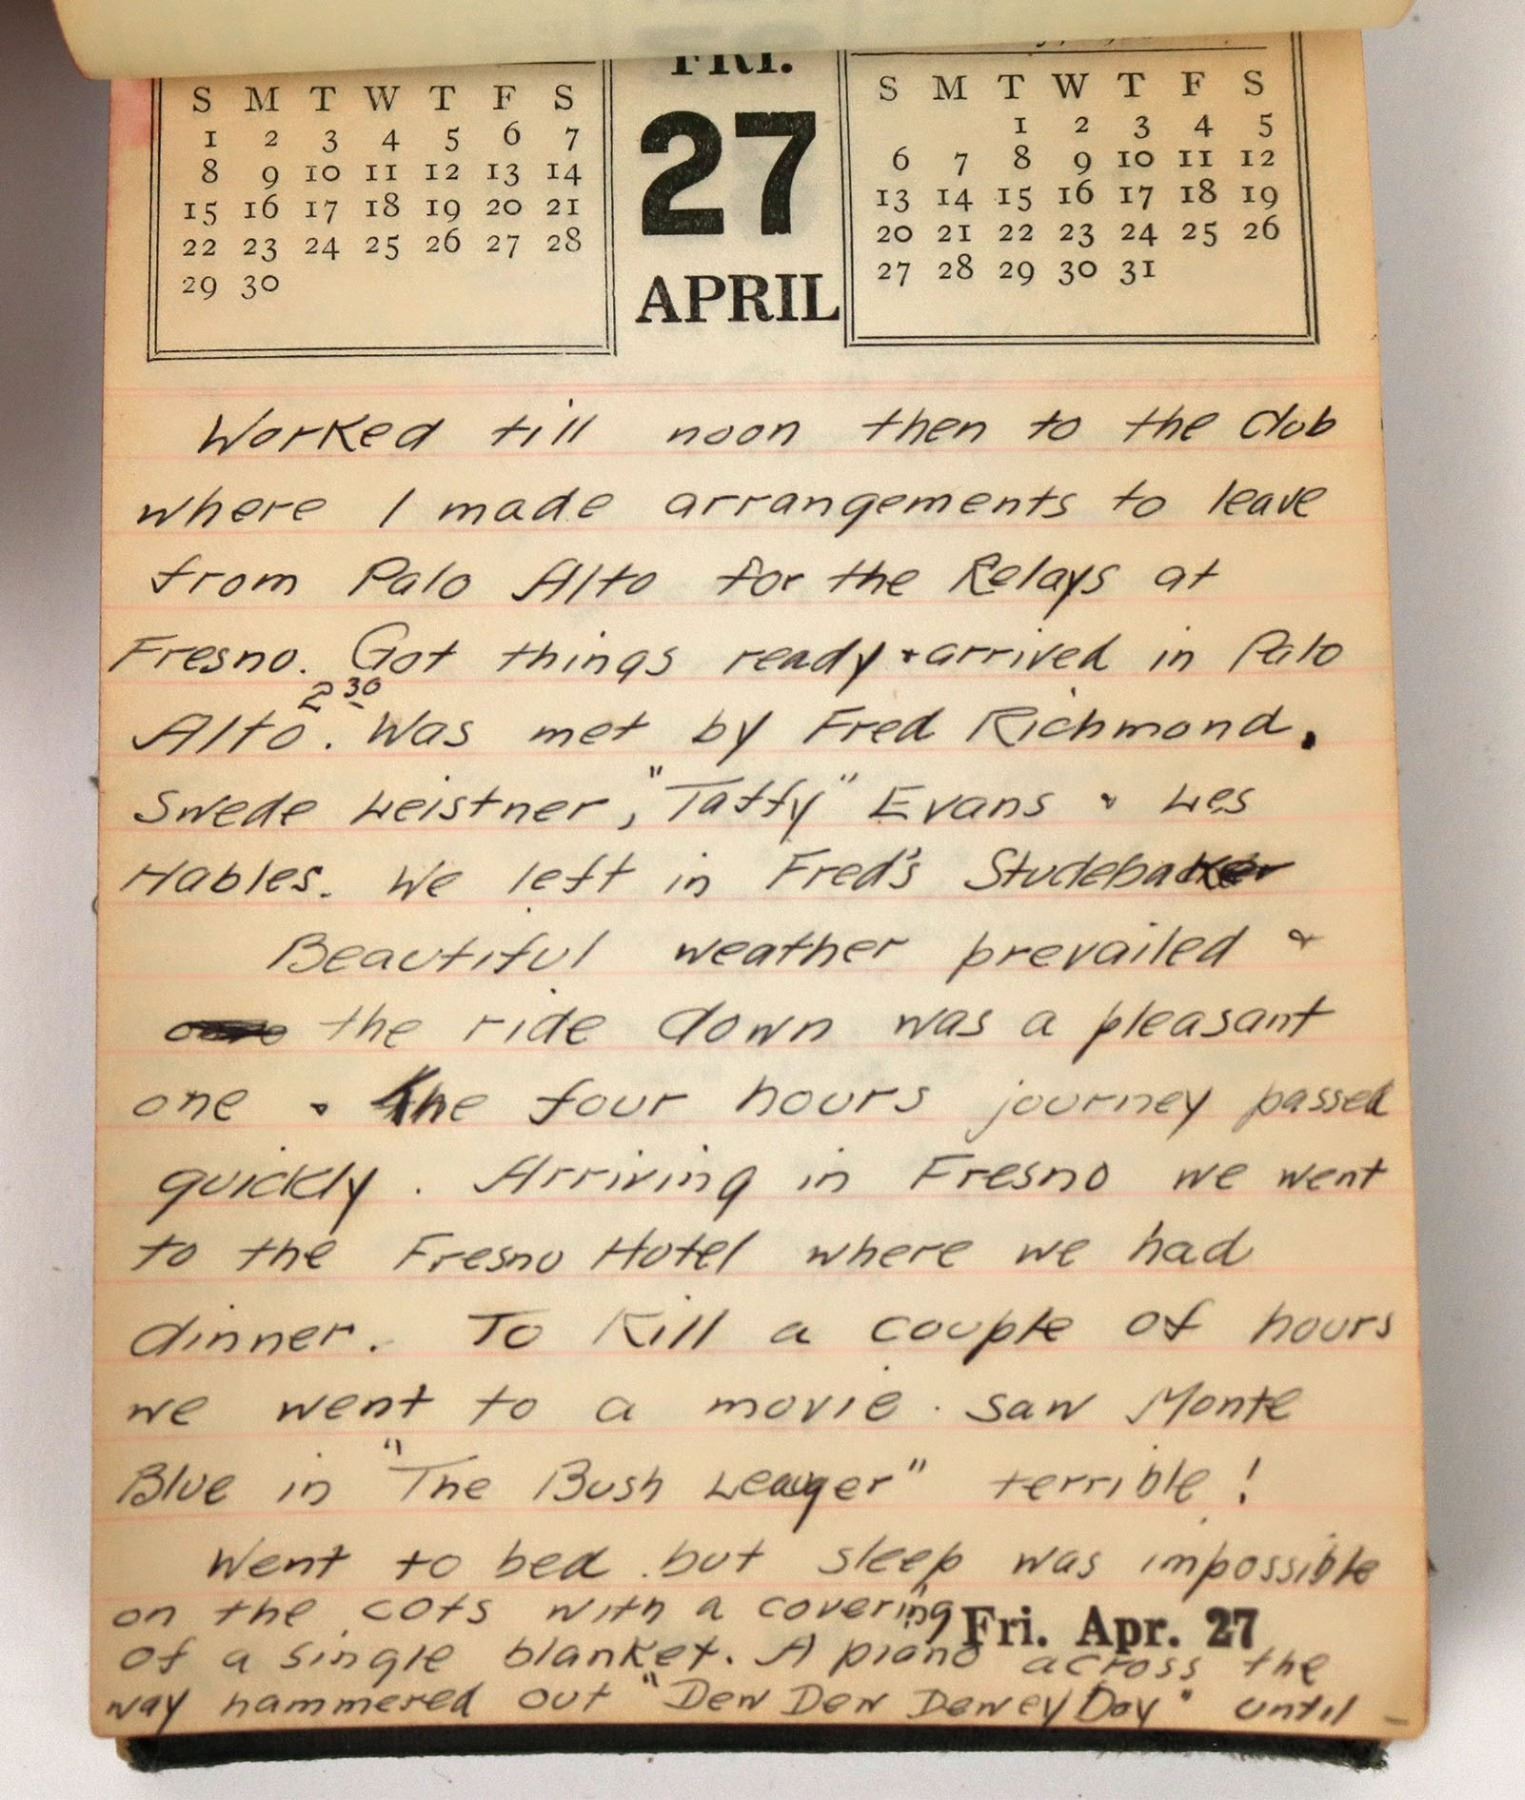 FRI.
27
APRIL
S M T W T F S
1 2 3 4 5 6 7
8 9 10 11 12 13 14
15 16 17 18 19 20 21
22 23 24 25 26 27 28
29 30
S M T W T F S
1 2 3 4 5
6 7 8 9 10 11 12
13 14 15 16 17 18 19
20 21 22 23 24 25 26
27 28 29 30 31
Worked till noon then to the Club
where I made arrangements to leave
from Palo Alto for the Relays at
Fresno. Got things ready & arrived in Palo
Alto 2 30. Was met by Fred Richmond,
Swede Leistner, "Taffy" Evans & Les
Hables. We left in Fred's Studebaker
Beautiful weather prevailed &
the ride down was a pleasant
one & the four hours journey passed
quickly. Arriving in Fresno we went
to the Fresno Hotel where we had
dinner. To Kill a couple of hours
we went to a movie. saw Monte
Blue in "The Bush Leauger" terrible!
Went to bed but sleep was impossible
on the cots with a covering
Fri. Apr. 27
of a single blanket. A piano across the
way hammered out "Dew Dew Dewey Day" until